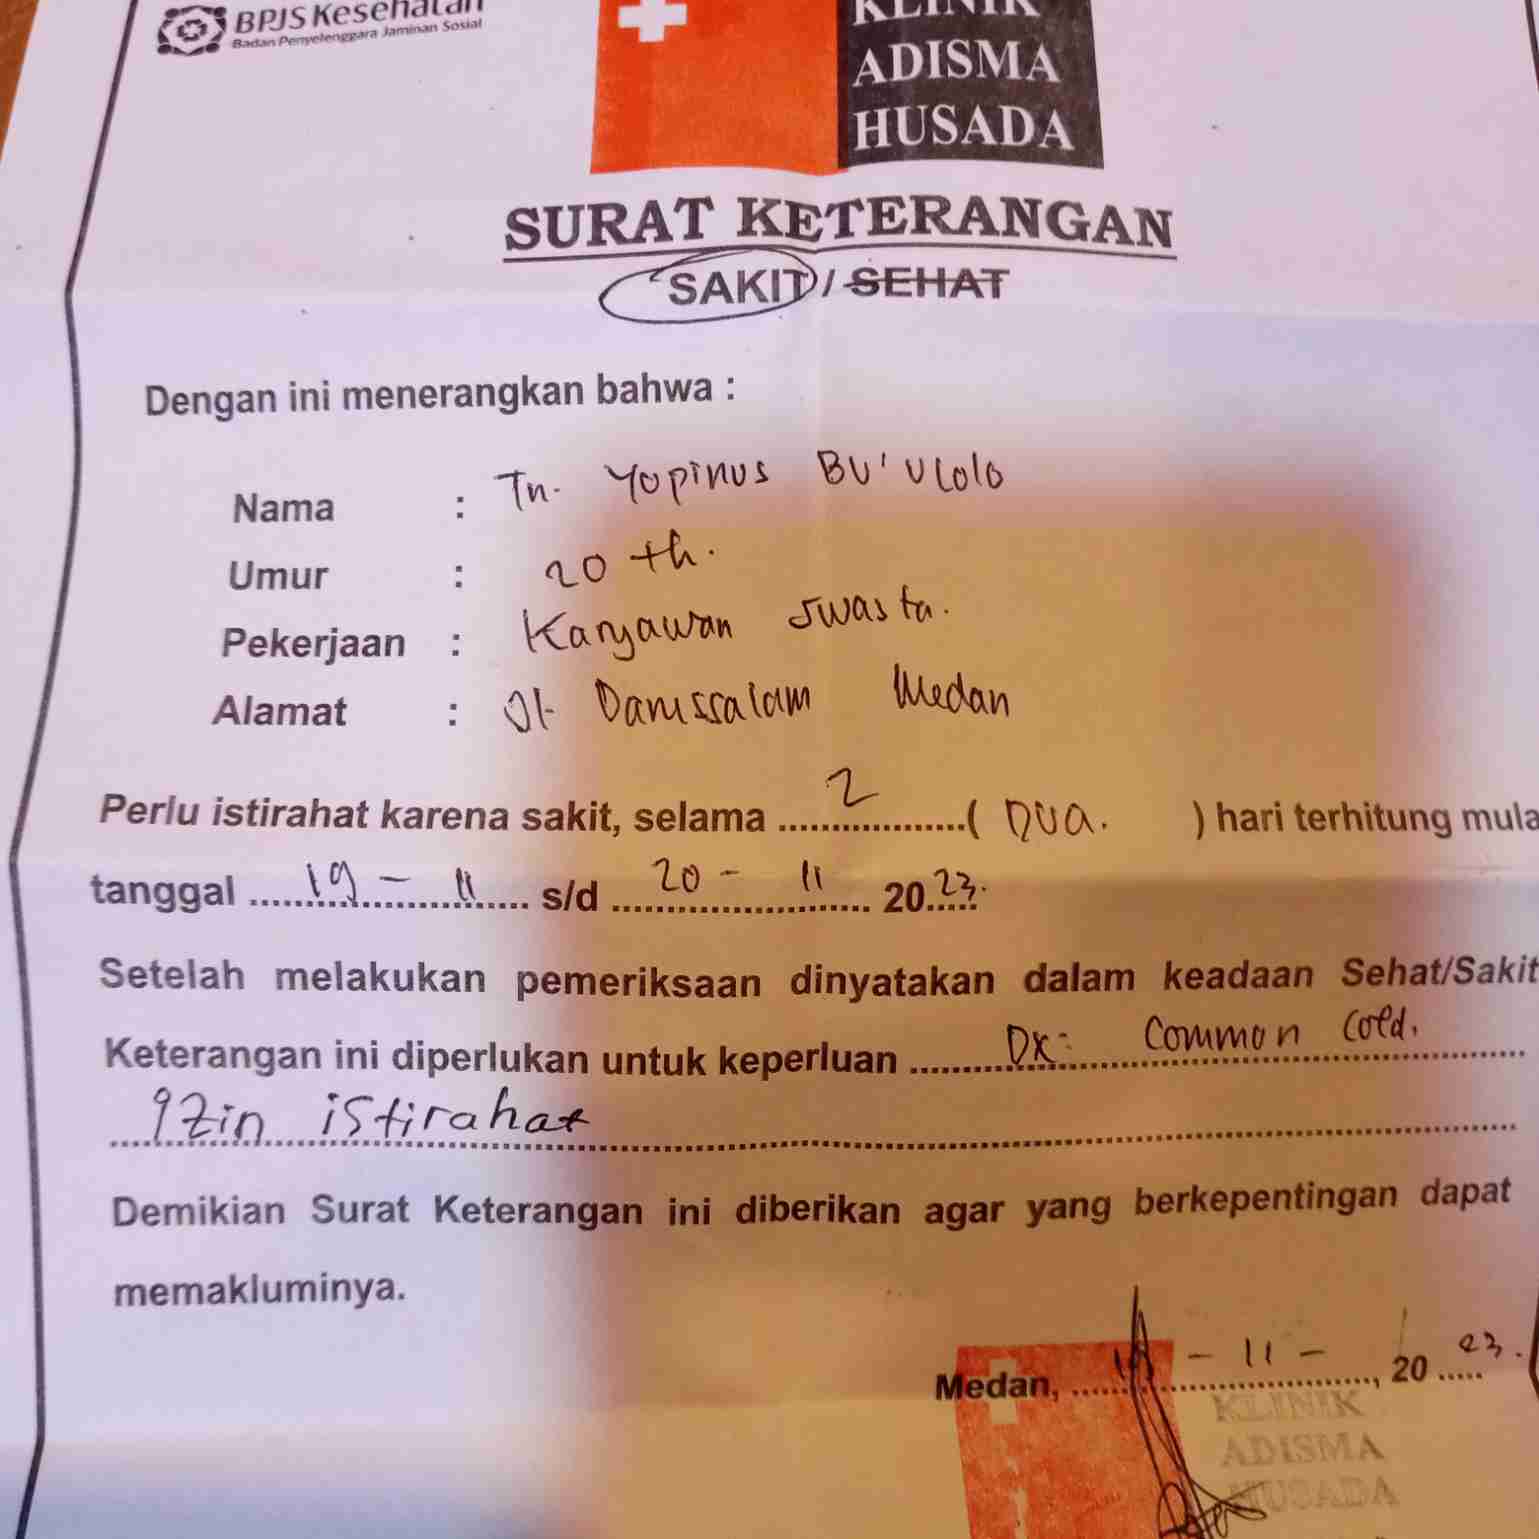 BPJS Kesehatan
Badan Penyelenggara Jaminan Sosial
KLINIK
ADISMA
HUSADA
SURAT KETERANGAN
SAKIT / SEHAT
Dengan ini menerangkan bahwa :
Nama : Tn. Yopinus BU'ULOLO
Umur : 20 th.
Pekerjaan : Karyawan swasta.
Alamat : Jl. Darussalam Medan
Perlu istirahat karena sakit, selama ....2....( DUA. ) hari terhitung mula
tanggal ....19 - 11.... s/d ....20 - 11.... 2023.
Setelah melakukan pemeriksaan dinyatakan dalam keadaan Sehat/Sakit
Keterangan ini diperlukan untuk keperluan ....Dx: Common Cold.
Izin istirahat
Demikian Surat Keterangan ini diberikan agar yang berkepentingan dapat
memakluminya.
Medan, ....19 - 11 - ...., 20 23.
KLINIK
ADISMA
HUSADA